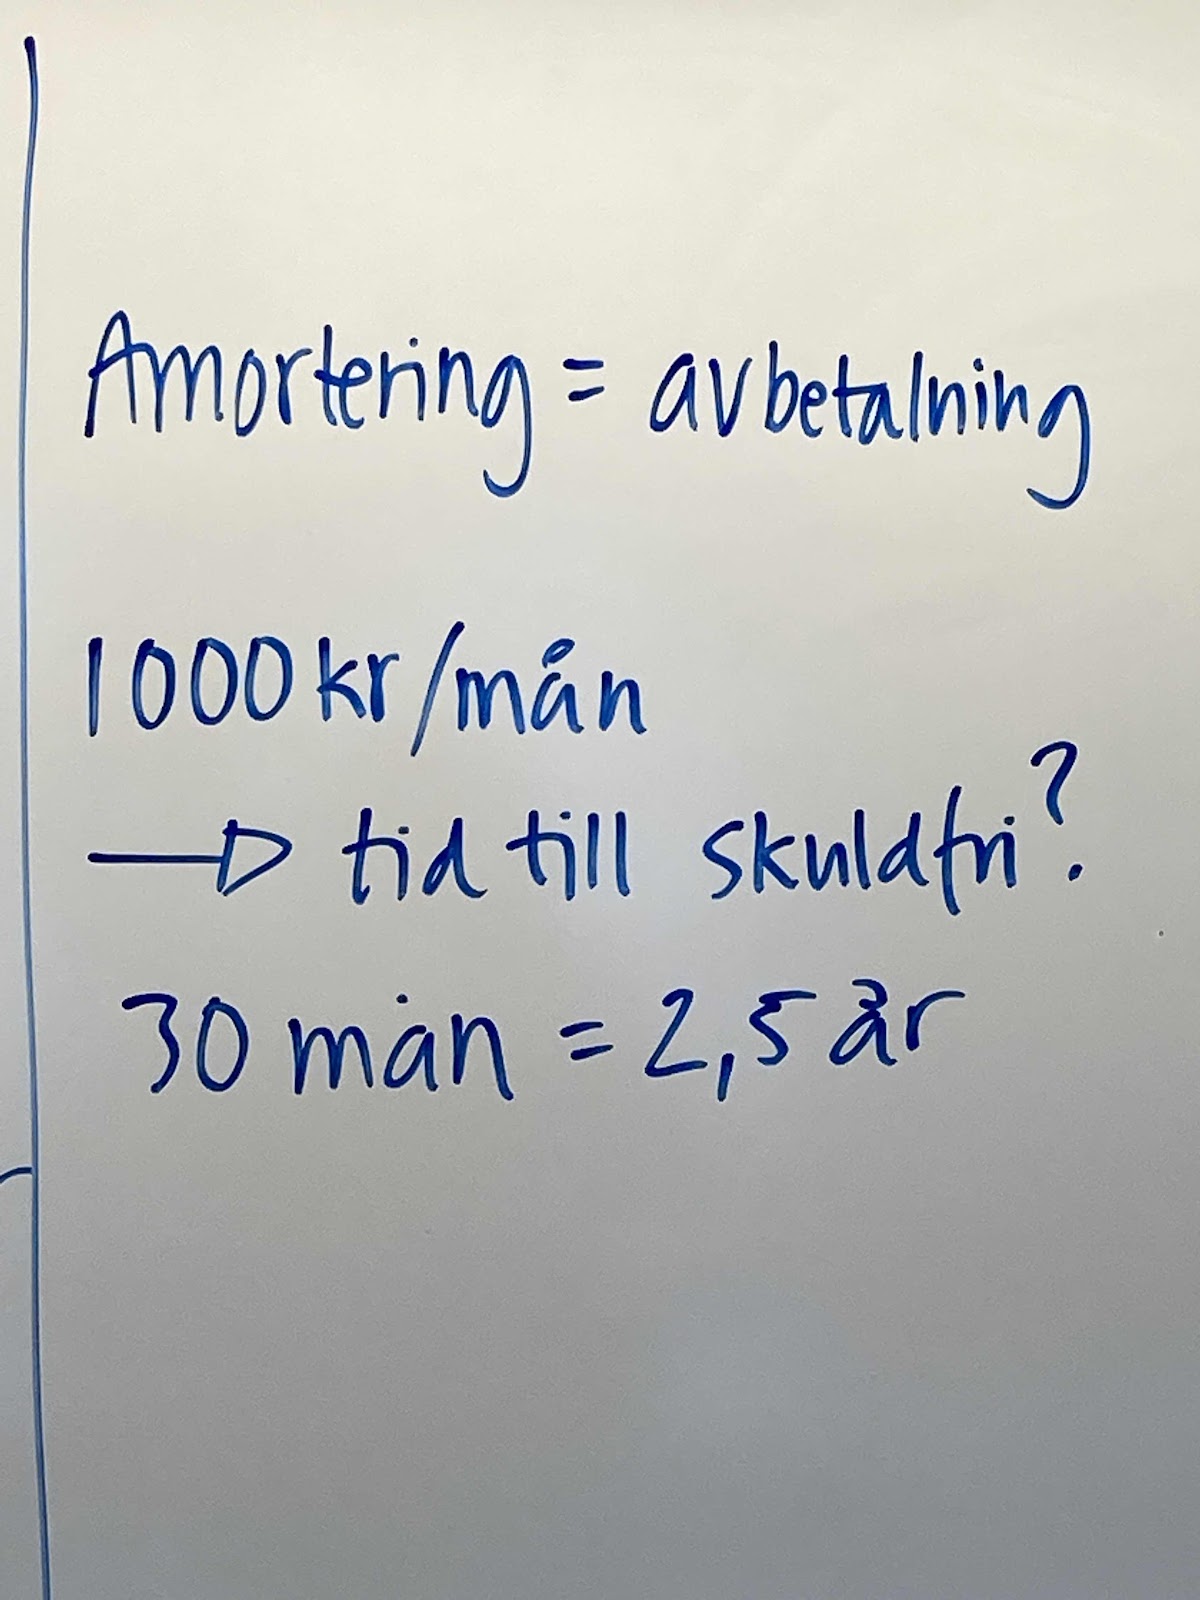 Amortering = avbetalning
1000 kr/mån
→ tid till skuldfri?
30 mån = 2,5 år